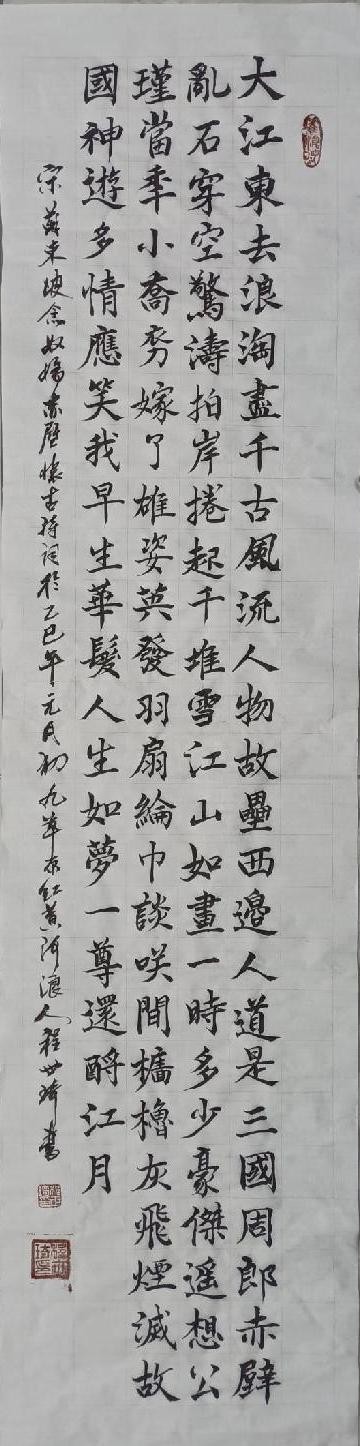 大江東去浪淘盡千古風流人物故壘西邊人道是三國周郎赤壁
亂石穿空驚濤拍岸捲起千堆雪江山如畫一時多少豪傑遥想公
瑾當秊小喬初嫁了雄姿英發羽扇綸巾談咲間檣櫓灰飛煙滅故
國神遊多情應笑我早生華髮人生如夢一尊還酹江月
宋蘇東坡念奴嬌赤壁懷古詩詞於乙巳年元月初九草於紅黄河浪人程世琦書